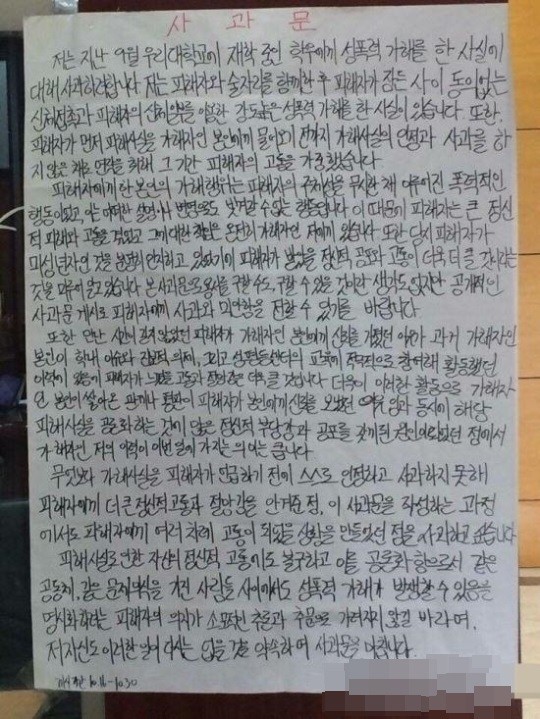 사 과 문
저는 지난 9월 우리대학교에 재학 중인 학우에게 성폭력 가해를 한 사실에
대해 사과하려합니다. 저는 피해자와 술자리를 함께한 후 피해자가 잠든 사이 동의없는
신체접촉과 피해자의 상의 탈의 강도높은 성폭력 가해를 한 사실이 있습니다. 또한,
피해자가 먼저 피해사실을 가해자인 본인에게 물어오기 전까지 가해사실의 인정과 사과를 하
지 않은 채로 연락을 취해 그 기간 피해자의 고통을 가중했습니다.
피해자에게 한 본인의 가해행위는 피해자의 주체성을 무시한 채 이루어진 폭력적인
행동이었고, 어떠한 설명이나 변명으로도 벗겨질 수 없는 행동입니다. 이 때문에 피해자는 큰 정신
적 피해와 고통을 겪었고 그에 대한 책임은 온전히 가해자인 저에게 있습니다. 또한 당시 피해자가
미성년자인 것을 분명히 인지하고 있었기에 피해자가 받았을 정신적 공포와 고통이 더욱 더 클 것이라는
것을 알고 있습니다. 본 사과문으로 용서를 구할 수도, 구할 수 있을 것이란 생각도 않지만 공개적인
사과문 게시로 피해자에게 사과와 미안함을 전할 수 있기를 바랍니다.
또한 만난 시간이 길지 않았던 피해자가 가해자인 본인에게 신뢰를 가졌던 이유가 과거 가해자인
본인이 학내 이슈와 성평등센터의 교육에 주도적으로 참여해 활동했던
이력이 있음에 피해자가 느꼈을 고통과 절망감은 더욱 클 것입니다. 더욱이 이러한 활동으로 가해자
인 본인이 쌓아온 관계나 평판이 피해자가 본인에게 신뢰를 이유임과 동시에 해당
피해사실을 공론화 하는 것에 많은 정신적 부담감과 공포를 갖게된 원인이라는 점에서
가해자인 저의 이력이 이번 일에 가지는 의미는 큽니다.
무엇보다 가해사실을 피해자가 언급하기 전에 스스로 인정하고 사과하지 못해
피해자에게 더 큰 정신적고통과 절망감을 안겨준 점, 이 사과문을 작성하는 과정
에서도 피해자에게 여러 차례 고통이 되었을 상황을 만들었던 점을 사과하고 싶습니다.
피해사실로 인한 자신의 정신적 고통에도 불구하고 이를 공론화 함으로서 같은
공동체, 같은 문제의식을 가진 사람들 사이에서도 성폭력 가해가 발생할 수 있음을
명시화하려는 피해자의 의지가 소모적인 추론과 추문으로 가려지지 않길 바라며,
저 자신도 이러한 일이 다시는 없을 것을 약속하며 사과문을 마칩니다.
10.16~10.30